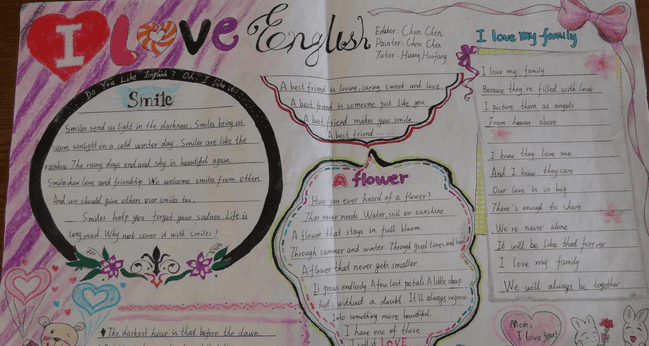 I LOVE English
Editor: Chen Chen
Painter: Chen Chen
Tutor: Huang Huifang
Do You Like English? Oh, I like it!
Smile
Smiles send us light in the darkness. Smiles bring us
warm sunlight on a cold winter day. Smiles are like the
rainbow. The rainy days end and sky is beautiful again.
Smiles show love and friendship. We welcome smiles from others.
And we should give others our smiles too.
Smiles help you forget your sadness. Life is
long road. Why not cover it with smiles?
The darkest hour is that before the dawn.
A best friend is loving, caring, sweet and love
A best friend is someone just like you.
A best friend makes you smile
A best friend
A flower
Have you ever heard of a flower?
That never needs Water, soil or sunshine
A flower that stays in full bloom
Through summer and winter. Through good times and bad
A flower that never gets smaller
It grows endlessly. A few lost petals. A little droop
But, without a doubt. It'll always regrow
Into something more beautiful.
I have one of those
I call it LOVE
I love my family
I love my family
Because they're filled with love
I picture them as angels
From heaven above
I know they love me
And I know they care
Our love is so big
There's enough to share
We're never alone
It will be like that forever
I love my family
We will always be together
Mom,
I love you!